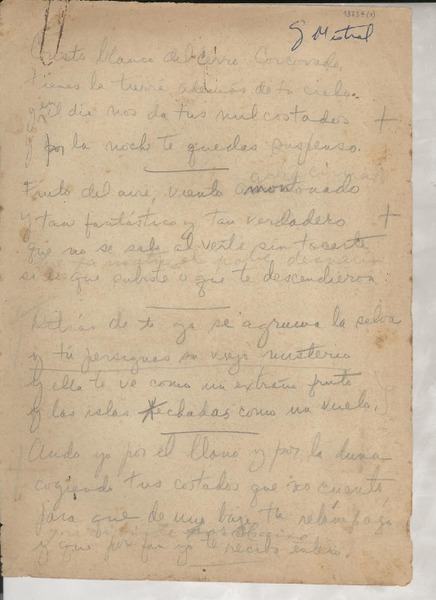 G Mistral
Cristo blanco del cerro Corcovado,
tienes la tierra además de tu cielo
y el día nos da tus mil costados +
y por la noche te quedas suspenso.
Fruto del aire, viento amontonado
y tan fantástico y tan verdadero +
que no se sabe al verte sin tocarte
si es que subiste o que te descendieron.
Detrás de ti ya se agruma la selva
y tú persignas su viejo misterio
y ella te ve como un extraño fruto
y las islas echadas como un vuelo.
Ando yo por el llano y por la duna
cogiendo tus costados que no cuento,
para que de una baje tu relámpago
y que por fin yo te reciba entero.